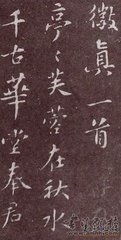 徽真一首
亭々芙蓉在秋水
千古華堂奉君